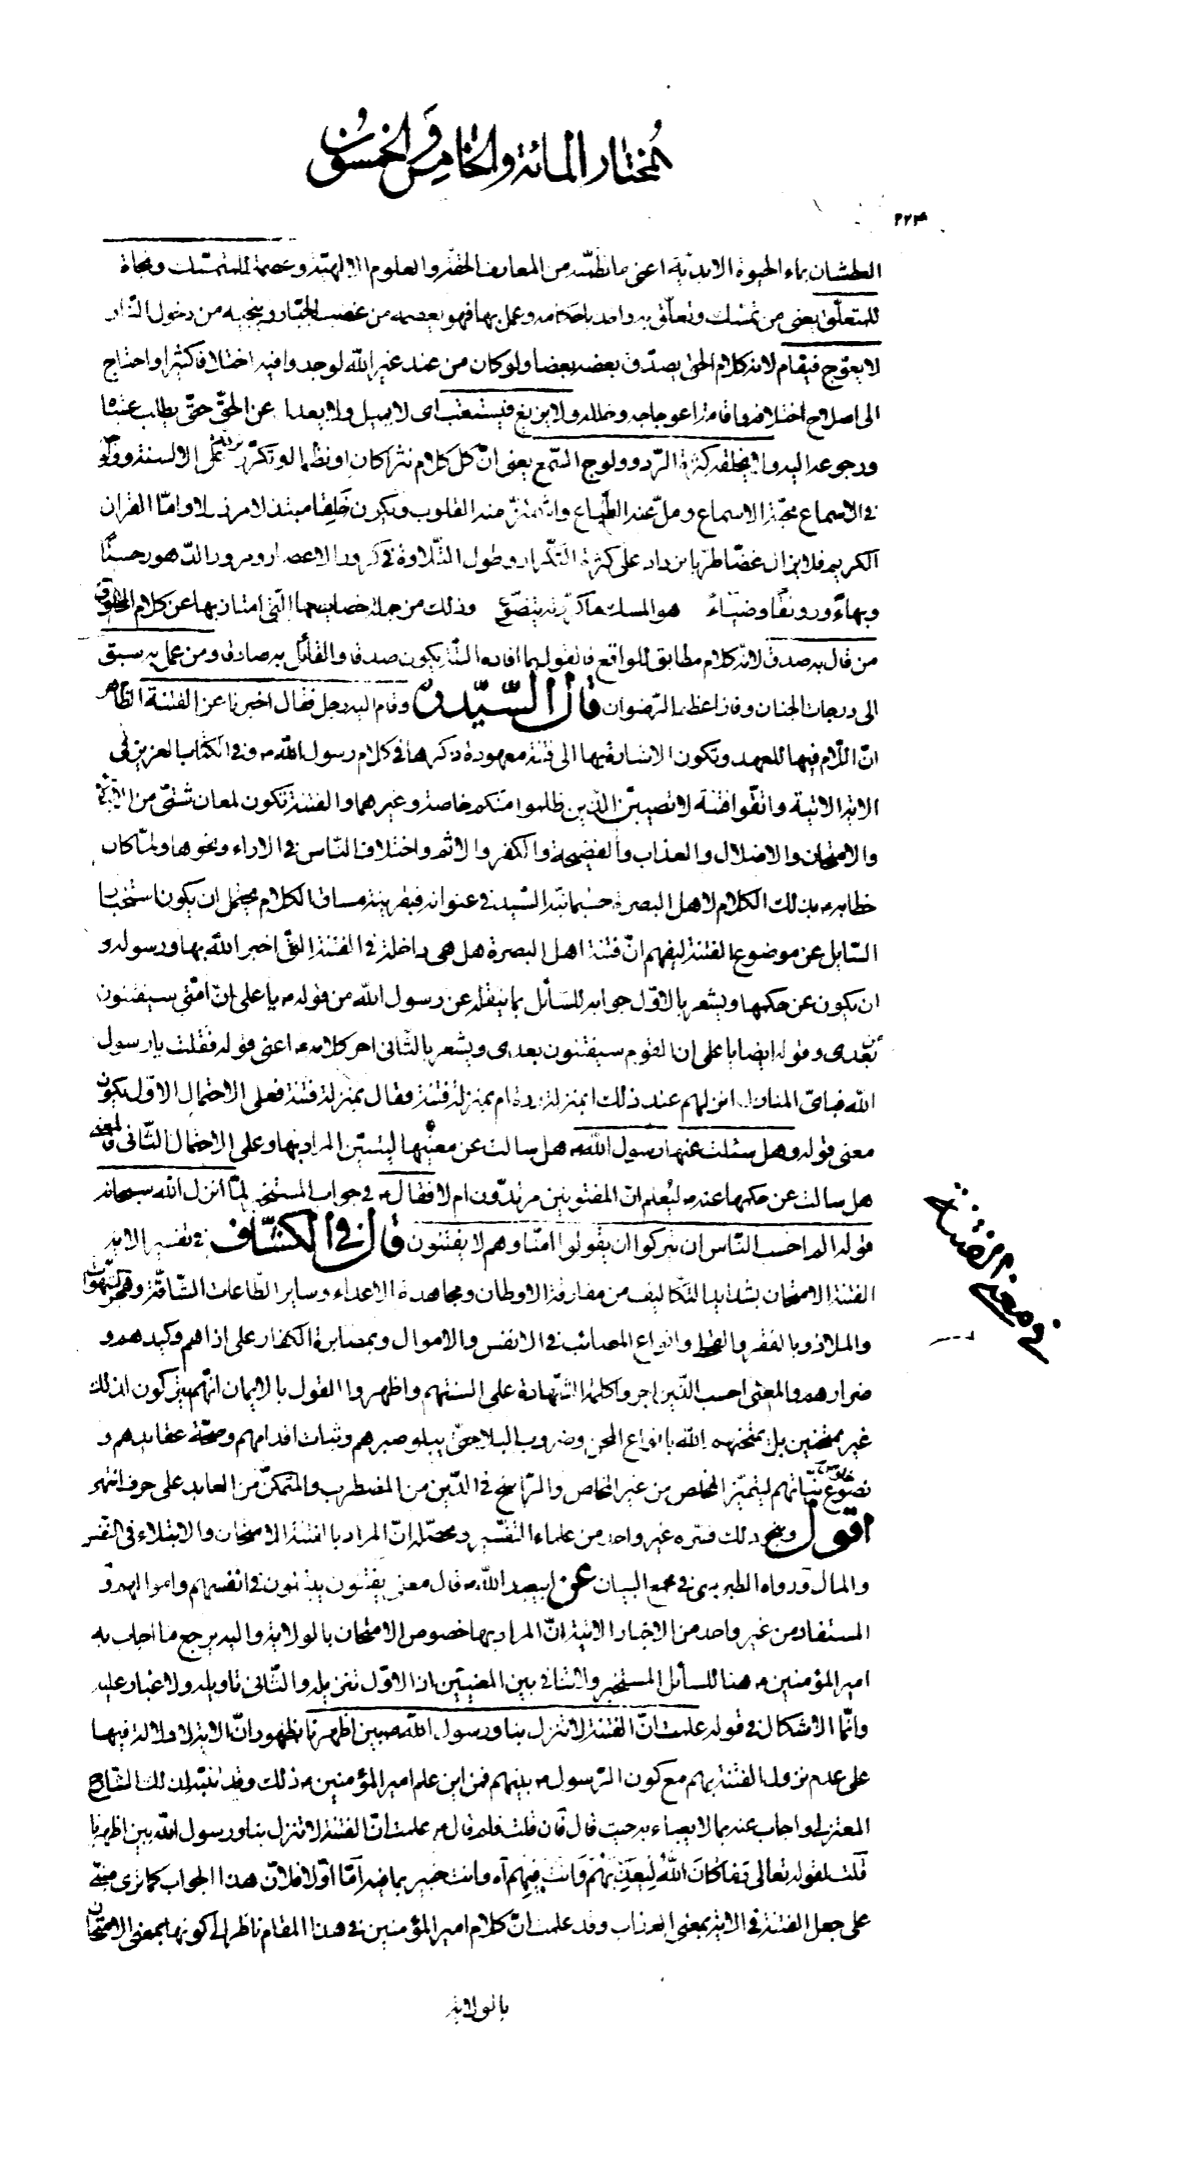 المختار المائة والخامس والخمسون
٢٢٣
العطشان بماء الحيوة الابدية اعنى ما تضمنه من المعارف الحقة والعلوم الالهية وعصمة للمتمسك ونجاة
للمتعلق يعنى من تمسك وتعلق به واخذ باحكامه وعمل بها فهو يعصمه من غضب الجبار وينجيه من دخول النار
لا يعوج فيقام لانه كلام الحق يصدق بعضه بعضا ولو كان من عند غير الله لوجدوا فيه اختلافا كثيرا واحتاج
الى اصلاح اختلافه واقامة اعوجاجه وخلله ولا يزيغ فيستعتب اى لا يميل ولا يعدل عن الحق حتى يطلب عتباه
ورجوعه اليه ولا يخلقه كثرة الرد وولوج السمع يعنى ان كل كلام نثرا كان او نظما لو تكرر على الالسنة وولج
فى الاسماع مجته الاسماع ومل عنه الطباع واشمئز منه القلوب ويكون خلقا مبتذلا مرذولا واما القران
الكريم فلا يزال غضا طريا يزداد على كثرة التكرار وطول التلاوة فى كرور الاعصار ومرور الدهور حسنا
وبهاء ورونقا وضياء هو المسك ما كررته يتضوع وذلك من جملة خصايصه التى امتاز بها عن كلام المخلوق
من قال به صدق لانه كلام مطابق للواقع فالقول بما افاده البتة يكون صدقا والقائل به صادقا ومن عمل به سبق
الى درجات الجنان وفاز اعظم الرضوان قال السيد ره وقام اليه رجل فقال اخبرنا عن الفتنة الظاهر
ان اللام فيها للعهد وتكون الاشارة بها الى فتنة معهودة ذكرها فى كلام رسول الله ص وفى الكتاب العزيز فى
الاية الاتية واتقوا فتنة لا تصيبن الذين ظلموا منكم خاصة وغيرهما والفتنة تكون لمعان شتى من
والامتحان والاضلال والعذاب والفضيحة والكفر والاثم واختلاف الناس فى الاراء ونحوها ولما كان
خطابه ع بذلك الكلام لاهل البصرة حسبما نبه السيد فى عنوانه فبقرينة مساق الكلام يحتمل ان يكون استخبار
السايل عن موضوع الفتنة ليفهم ان فتنة اهل البصرة هل هى داخلة فى الفتنة التى اخبر الله بها ورسوله و
ان يكون عن حكمها ويشعر بالاول جوابه للسائل بما ينقله عن رسول الله من قوله ص يا على ان امتى سيفتنون
بعدى وقوله ايضا يا على ان القوم سيفتنون بعدى ويشعر بالثانى اخر كلامه ع اعنى قوله فقلت يا رسول
الله فباى المنازل انزلهم عند ذلك ابمنزلة ردة ام بمنزلة فتنة فقال بمنزلة فتنة فعلى الاحتمال الاول يكون
معنى قوله وهل سئلت عنها رسول الله ص هل سالت عن معنيها ليتبين المراد بها وعلى الاحتمال الثانى فالمعنى
هل سالت عن حكمها عنه ص ليعلم ان المفتونين مرتدون ام لا فقال ع فى جواب المستخبر لما انزل الله سبحانه
قوله الم احسب الناس ان يتركوا ان يقولوا امنا وهم لا يفتنون قال فى الكشاف فى تفسير الاية
الفتنة الامتحان بشدايد التكاليف من مفارقة الاوطان ومجاهدة الاعداء وساير الطاعات الشاقة وهجر الشهوات
والملاذ وبالفقر والقحط وانواع المصائب فى الانفس والاموال وبمصابرة الكفار على اذاهم وكيدهم و
ضرارهم والمعنى احسب الذين اجروا كلمة الشهادة على السنتهم واظهروا القول بالايمان انهم يتركون لذلك
غير ممتحنين بل يمتحنهم الله بانواع المحن وضروب البلا حتى يبلو صبرهم وثبات اقدامهم وصحة عقايدهم و
نصوع نياتهم ليتميز المخلص من غير المخلص والراسخ فى الدين من المضطرب والمتمكن من العابد على حرف انتهى
اقول وبنحو ذلك فسره غير واحد من علماء التفسير ومحصله ان المراد بالفتنة الامتحان والابتلاء فى النفس
والمال ورواه الطبرسى فى مجمع البيان عن ابيعبد الله ع قال معنى يفتنون يبتلون فى انفسهم واموالهم و
المستفاد من غير واحد من الاخبار الاتية ان المراد بها خصوص الامتحان بالولاية واليه يرجع ما اجاب به
امير المؤمنين ع هنا للسائل المستخبر ولا تنافى بين المعنيين اذ الاول تنزيله والثانى تاويله ولا غبار عليه
وانما الاشكال فى قوله علمت ان الفتنة لا تنزل بنا ورسول الله ص بين اظهرنا لظهور ان الاية لا دلالة فيها
على عدم نزول الفتنة بهم مع كون الرسول ص بينهم فمن اين علم امير المؤمنين ع ذلك وقد تنبه لذلك الشارح
المعتزلى واجاب عنه بما لا يعباء به حيث قال فان قلت فلم قال ع علمت ان الفتنة لا تنزل بنا ورسول الله بين اظهرنا
قلت لقوله تعالى وما كان الله ليعذبهم وانت فيهم اه وانت خبير بما فيه اما اولا فلان هذا الجواب كما ترى مبنى
على جعل الفتنة فى الاية بمعنى العذاب وقد علمت ان كلام امير المؤمنين فى هذا المقام ناظر الى كونها بمعنى الامتحان
بالولاية
فى معنى الفتنة